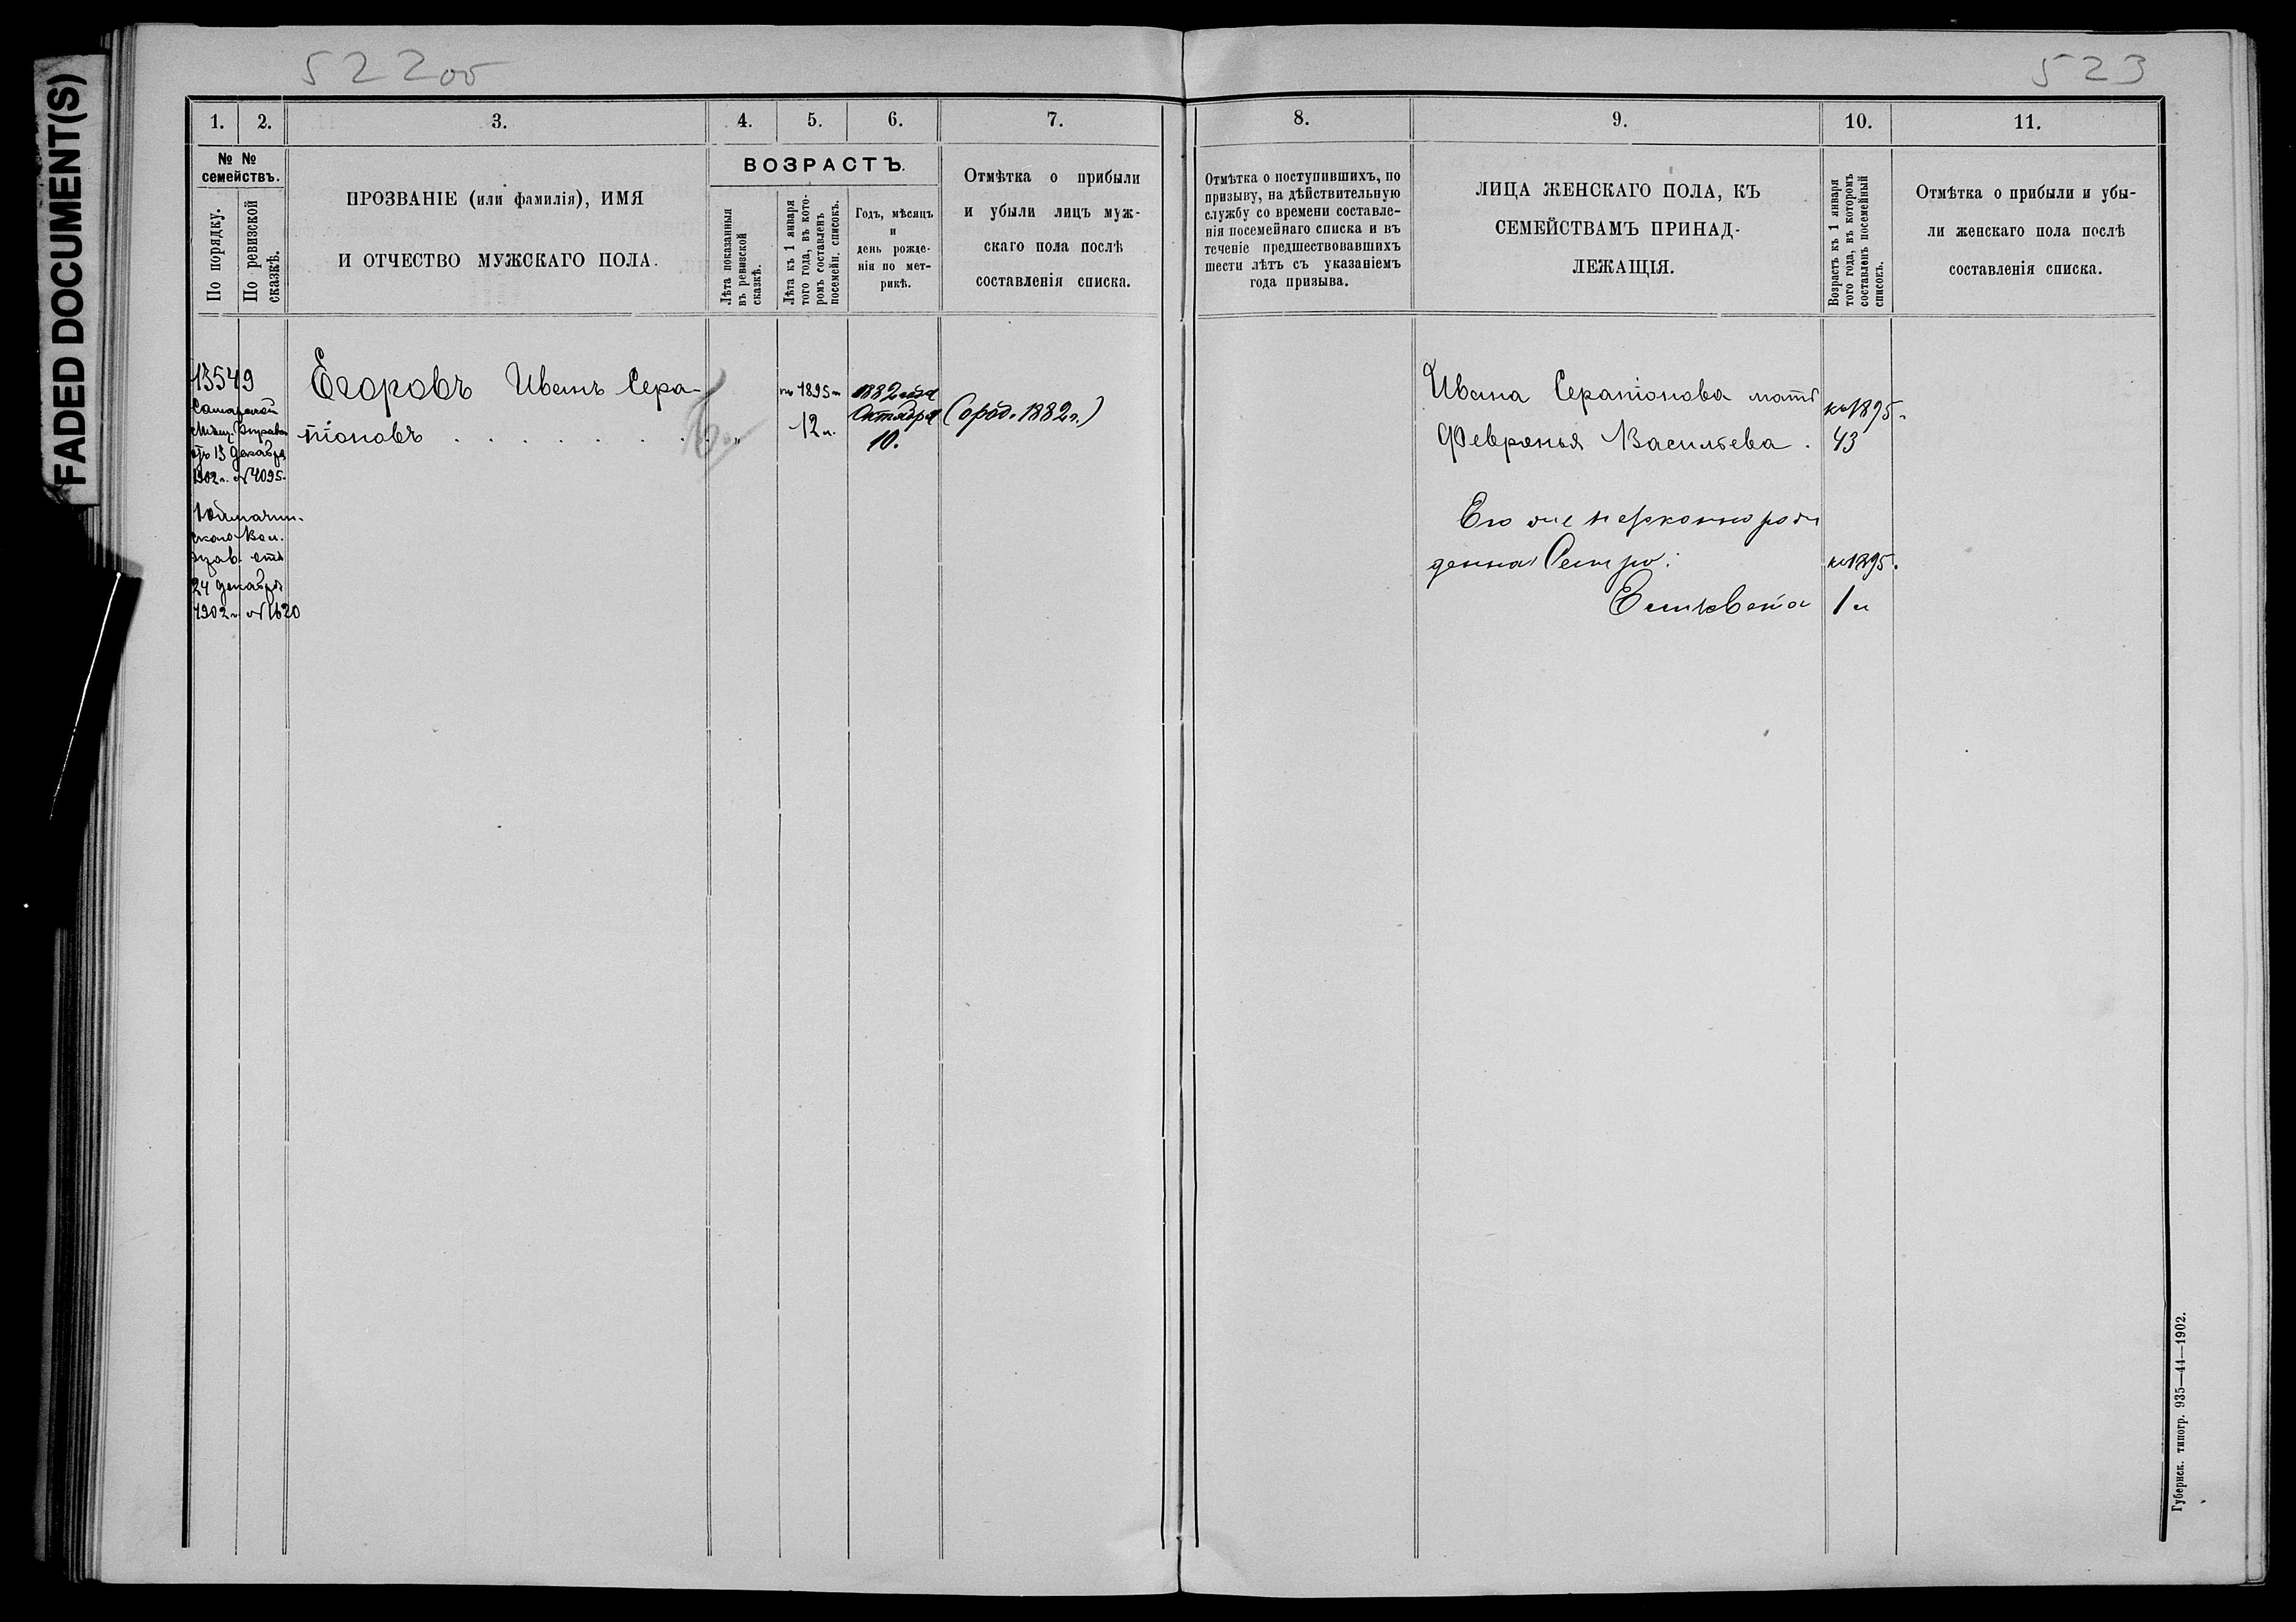 FADED DOCUMENT(S)
522об
1. 2. 3. 4. 5. 6. 7.
№ №
семействъ.
По порядку.
По ревизской
сказкѣ.
ПРОЗВАНІЕ (или фамилія), ИМЯ
И ОТЧЕСТВО МУЖСКАГО ПОЛА.
ВОЗРАСТЪ.
Лѣта показанныя
въ ревизской
сказкѣ.
Лѣта къ 1 января
того года, въ кото-
ромъ составленъ
посемейн. списокъ.
Годъ, мѣсяцъ
и
день рожде-
нія по мет-
рикѣ.
Отмѣтка о прибыли
и убыли лицъ муж-
скаго пола послѣ
составленія списка.
13549
Самарской
Мѣщ. Управы
отъ 13 декабря
1902 г. № 4095.
скаго Вол.
Прав. отъ
24 декабря
1902 г. № 1620
Егоровъ Иванъ Сера-
піоновъ
1895
12 л.
1882 года
Октября
10.
(о род. 1882 г.)
523
8. 9. 10. 11.
Отмѣтка о поступившихъ, по
призыву, на дѣйствительную
службу со времени составле-
нія посемейнаго списка и въ
теченіе предшествовавшихъ
шести лѣтъ съ указаніемъ
года призыва.
ЛИЦА ЖЕНСКАГО ПОЛА, КЪ
СЕМЕЙСТВАМЪ ПРИНАД-
ЛЕЖАЩІЯ.
Возрастъ къ 1 января
того года, въ которомъ
составленъ посемейный
списокъ.
Отмѣтка о прибыли и убы-
ли женскаго пола послѣ
составленія списка.
Ивана Серапіонова мать
Февронья Васильева. 43
къ 1895.
Его же незаконно рож
денная Сестра:
къ 1895.
Елизавета 1 г.
Губернск. типогр. 935—44—1902.